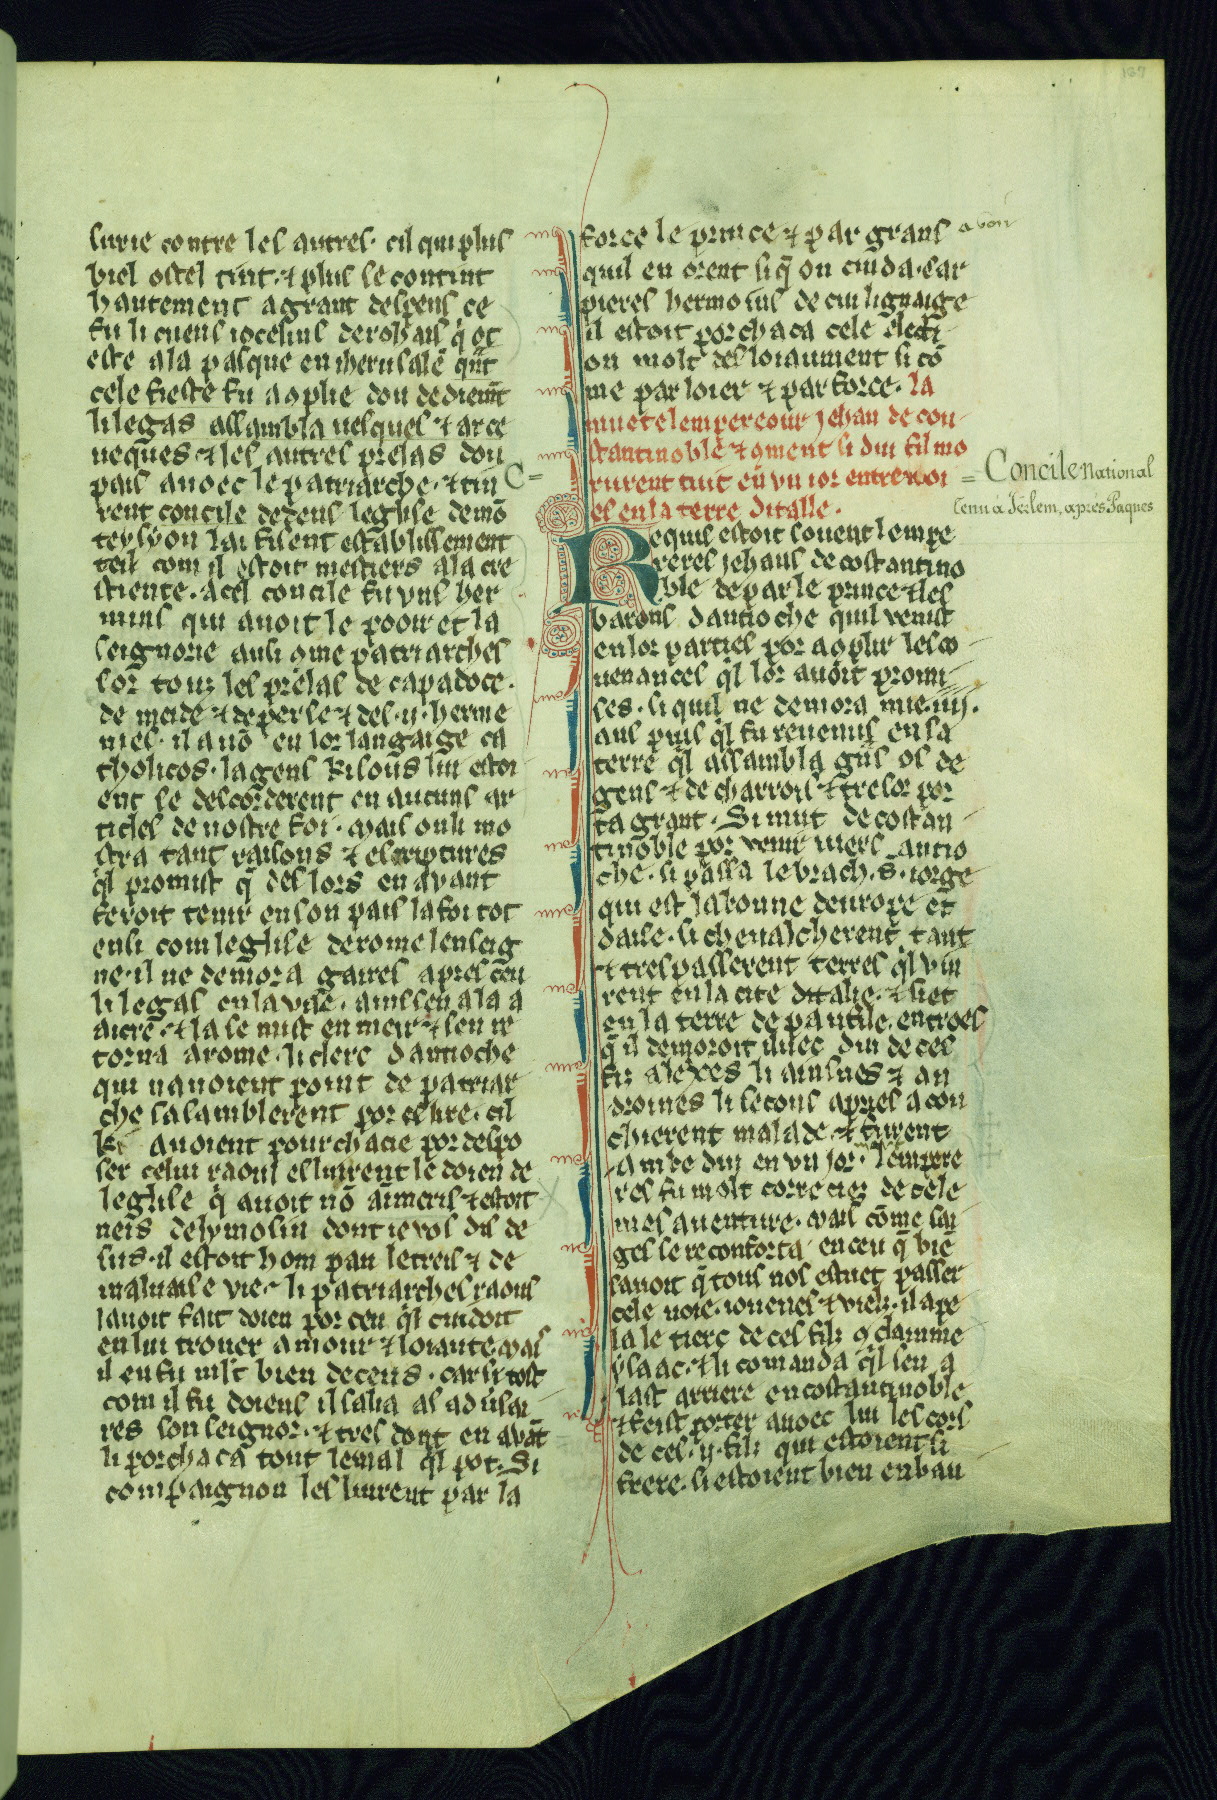 surie contre les autres. cil qui plus
biel ostel tint. ⁊ plus se contint
hautement a grant despens ce
fu li cuens iocelins de rohais q̓ ot
este a la pasque en iherusalẽ q̃nt
cele fieste fu aoplie don dediem̃t
li legas assambla uesques ⁊ arce
uesq̃s ⁊ les autres prelas dou
pais auoec le patriarche. ⁊ tin
rent concile dedens leglise de mõ
te syon lai fisent establissement
teil com il estoit mestiers a la cre
stiente. a cel concile fu vns her
mins qui auoit le pooir et la
seignorie ausi ome patriarches
sor touz les prelas de capadoce.
de mede ⁊ de perse ⁊ des .ii. herme
nies. il auoit en lor langaige ca
tholicos. la gens ki sous lui estoi
ent se descorderent en aucuns ar
ticles de nostre foi. mais on li mo
stra tant raisons ⁊ escriptures
q̓l promist q̃ des lors en auant
feroit tenir en son pais la foi tot
ensi com leglise de rome lenseig
ne. il ne demora gaires apres ceu
li legas en la vile. ains sen ala a
aicre. ⁊ la se mist en meir ⁊ sen re
torna a rome. li clerc dantioche
qui nauoient point de patriar
che sasamblerent por eslire. cil
ki auoient pourchacie por despo
ser celui raoul eslurent le doien de
leglise q̃ auoit nõ aimeris ⁊ estoit
neis de lymosin dont ie vos dis de
sus. il estoit hom pau letreis ⁊ de
maluaise vie. li patriarches raous
lauoit fait doien por ceu q̓l cuidoit
en lui trouer amour ⁊ loiaute. mais
il en fu mlt bien deceus. car si tost
com il fu doiens il salia as aduersai
res son seignor. ⁊ tres dont en auãt
li porchaca tout le mal q̓l pot. Si
compaignon les liurent par la
force le prince ⁊ par grans auoir
quil en orent si q̃ on cuida. sar
pieres hermoius de cui lignaige
il estoit porchaca cele electi
on molt desloiaument si cõ
me par loier ⁊ par force. la
muete lempereour jehan de con
stantinoble ⁊ oment si dui fil mo
rurent tuit en vn ior entrewoi
es en la terre ditalle.
Requis estoit souent lempe
reres jehans de costantino
ble de par le prince ⁊ les
barons dantioche quil venist
en lor parties por aoplir les co
uenances q̓l lor auoit promi
ses. si quil ne demora mie .iiij.
ans puis q̓l fu reuenus en sa
terre q̓l assambla gñs os de
gens ⁊ de charrois ⁊ tresor por
ta grant. Si mut de costan
tinoble por venir uers antio
che. si passa le brach .s. iorge
qui est la bonne deurope et
daise. si cheualcherent tant
⁊ trespasserent terres q̓l vin
rent en la cite ditalie. ⁊ siet
en la terre de panfile. entroes
q̃ il demoroit illuec dui de ces
fiz alexes li ainsnes ⁊ an
droines li secons apres acou
chierent malade. ⁊ furent
ambe dui en vn jor. mort lempere
res fu molt correciez de cele
mesauenture. mais cõme sai
ges se reconforta en ceu q̃ biẽ
sauoit q̃ tous nos estuet passer
cele uoie. iouenes ⁊ viels. il ape
la le tierc de ces filz o claimme
ysaac. ⁊ li comanda q̓l sen a
last arriere en costantinoble
⁊ feist porter auoec lui les cors
de ces .ij. filz qui estoient si
frere. si estoient bien enbau
C=
= Concile National
tenu a Jerlem, aprés Paques
187